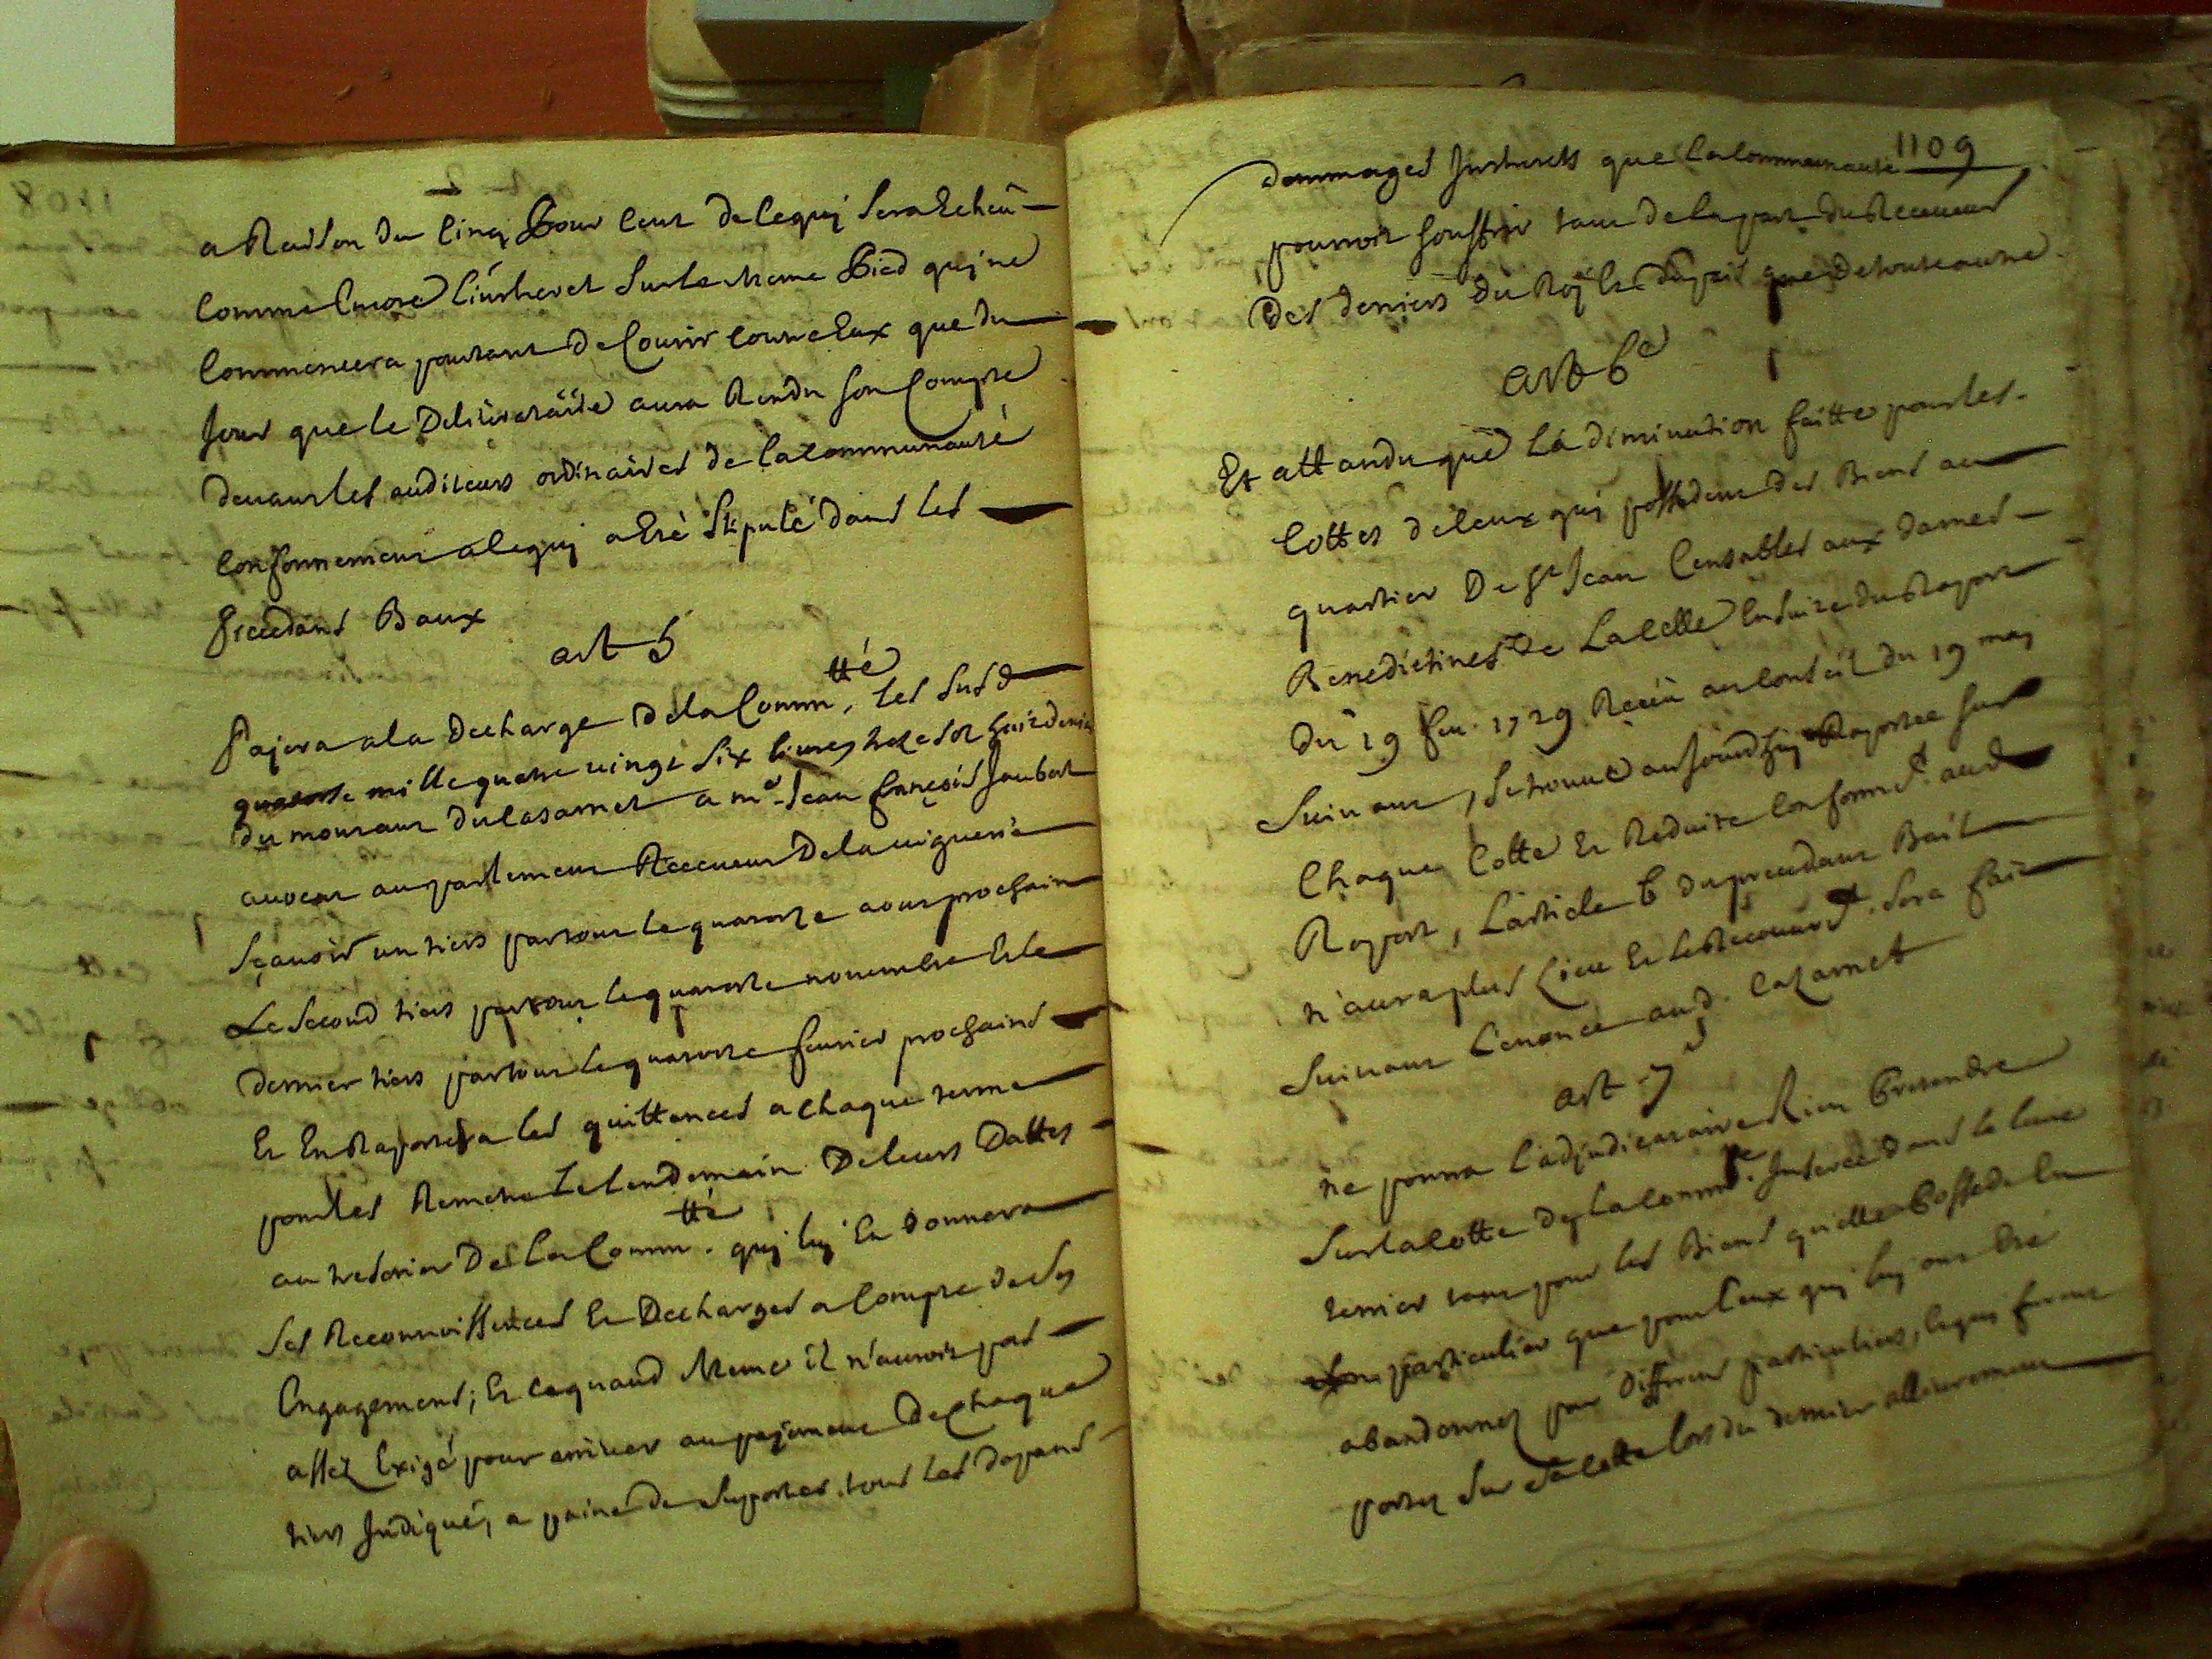 a Raison du Cinq Pour Cent de Cequj Sera Echeü
Comme Encore L'interest Sur le meme Pied quj ne
Commencera pourtant de Courir Contre Eux que du
Jour que le Deliberataire aura Rendu Son Compte
devant les auditeurs ordinaires de la Communauté
Conformement a Cequj a Eté Stipulé dans les
precedans Baux
art 5
Pajera a la decharge de la Comm.tté, les Susd
quatorze mille quatre vingt Six livres treze sol huit deniers
du montant du Casarnet a mr Jean françois Jaubert
avocat au parlement Receveur de la viguerie
Sçavoir un tiers partout le quatorze aout prochain
Le Second tiers partout le quatorze novembre Et le
dernier tiers partout le quatorze fevrier prochains
Et En Raportera les quittances a Chaque terme
pour les Remetre Le lendemain De leurs Dattes
au tresorier De la Comm.tté quj luj En donnera
Ses Reconnoissances En Decharges a Compte de Ses
Engagements; Et Ce quand meme il n'auroit pas
assez Exigé pour arriver au pajement de Chaque
tiers Indiqué, a peine de Suporter tous les depans
1109
dommages Interests que la Communauté
pourroit Souffrir tant de la part du Receveur
des deniers du Roÿ le dupaïs que de toute autre
art 6e
Et attandu que la diminution faitte par les
Cottes de Ceux quj possedent des Biens au
quartier De St Jean Censables aux dames
Benedictines de La Celle Ensuite du Raport
du 19 fev. 1729 Receü au Conseil du 19 maj
Suivant, Se trouve aujourdhuj Raportée Sur
Chaque Cotte Et Reduite Conformt aud
Raport, L'article 6 du precedant Bail
n'aura plus Lieu Et le Recouvrt. Sera fait
Suivant L'enoncé aud. Cazarnet
art 7
ne pourra L'adjudicataire Rien Pretendre
Sur la Cotte de la Commté. Inserée dans le livre
terrier tant pour les Biens qu'elle Possede En
particulier que pour Ceux quj luj ont Eté
abandonnez par differens particuliers, lequj furent
portez Sur Sa Cotte lors du dernier allivrement